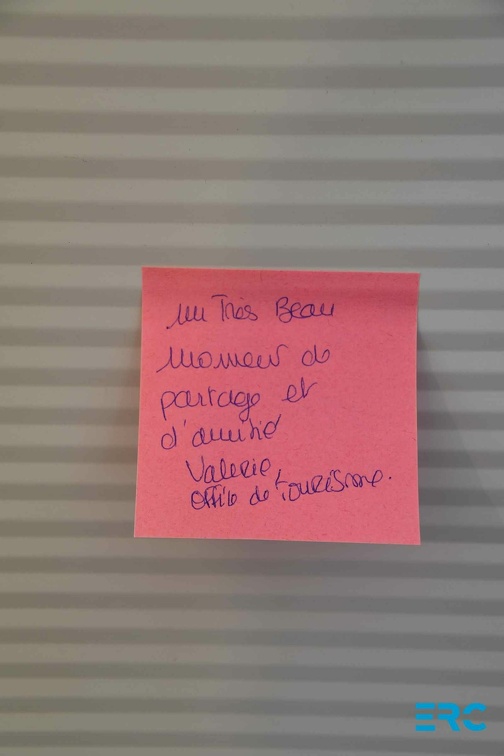 un Très Beau
Moment de
partage et
d'amitié
Valerie
office de tourisme.
ERC